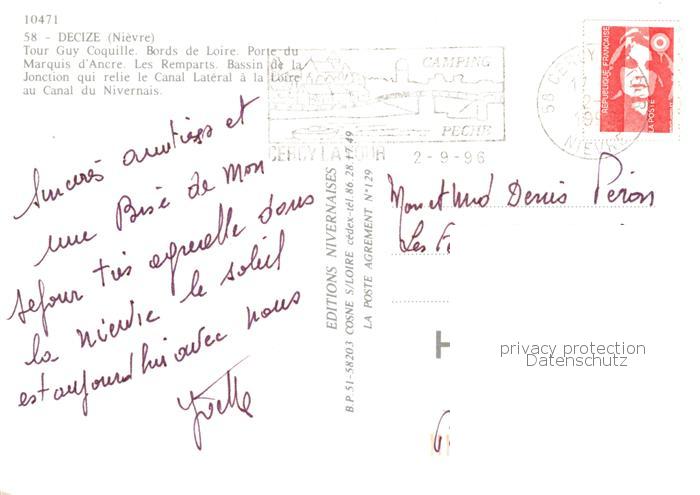 10471
58 - DECIZE (Nièvre)
Tour Guy Coquille. Bords de Loire. Porte du
Marquis d'Ancre. Les Remparts. Bassin de la
Jonction qui relie le Canal Latéral à la Loire
au Canal du Nivernais.
Sincères amitiés et
une Bise de Mon
sejour très agreable dans
la nievre le soleil
est aujourdhui avec nous
Yvette
CAMPING
PECHE
CERCY LA TOUR
2-9-96
58 CERCY
NIEVRE
REPUBLIQUE FRANÇAISE
LA POSTE
EDITIONS NIVERNAISES
B.P. 51-58203 COSNE S/LOIRE cédex-tél. 86 28 17 49
LA POSTE AGREMENT N° 129
Mon et Md Denis Peron
Les
H
privacy protection
Datenschutz